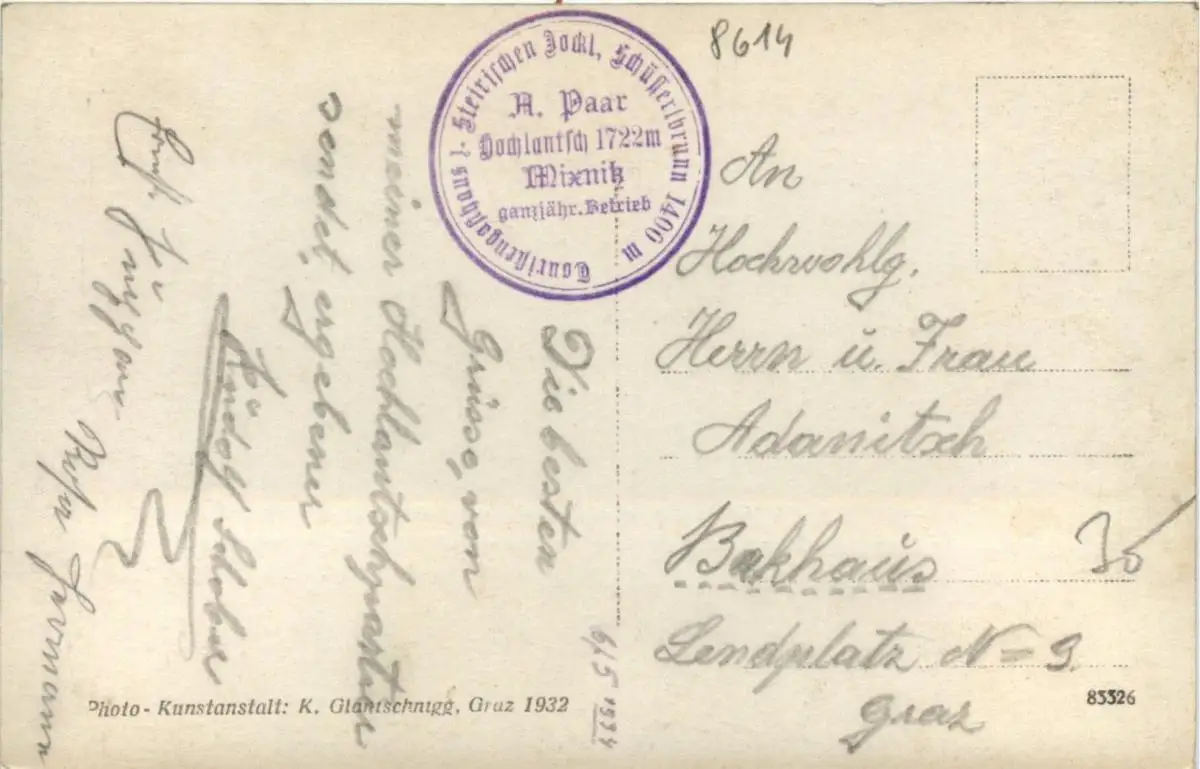 8614
Touristengasthaus z. Steirischen Jockl, Schüßerlbrunn 1400 m
A. Paar
Hochlantsch 1722m
Mixnitz
ganzjähr. Betrieb
Die besten
Grüsse, von
meiner Hochlantschpartie
sendet, ergebener
Rudolf Schober
6/5 1934
An
Hochwohlg.
Herrn u. Frau
Adanitsch
Bakhaus
Lendplatz N= 9.
Graz
30
Photo-Kunstanstalt: K. Glantschnigg, Graz 1932
83326